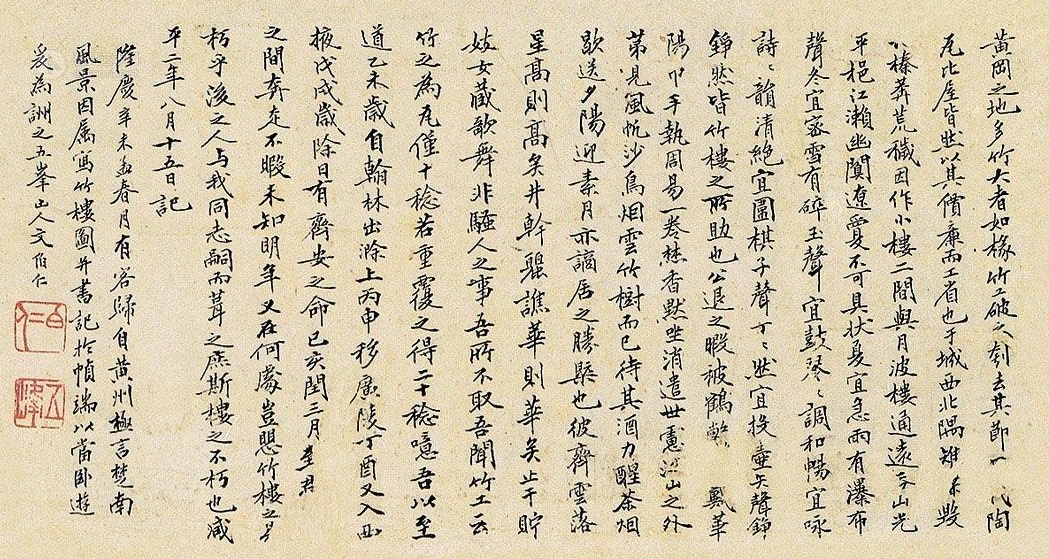 黃岡之地多竹大者如椽竹工破之刳去其節代陶
瓦比屋皆然以其價廉而工省也于城西北隅雉毀
榛莽荒穢因作小樓二間與月波樓通遠吞山光
平挹江瀨幽闃遼夐不可具狀夏宜急雨有瀑布
聲冬宜密雪有碎玉聲宜鼓琴〻調和暢宜咏
詩〻韻清絕宜圍棋子聲丁〻然宜投壺矢聲錚
錚然皆竹樓之所助也公退之暇被鶴氅戴華
陽巾手執周易一卷焚香默坐消遣世慮江山之外
第見風帆沙鳥烟雲竹樹而已待其酒力醒茶烟
歇送夕陽迎素月亦謫居之勝槩也彼齊雲落
星高則高矣井幹麗譙華則華矣止于貯
妓女藏歌舞非騷人之事吾所不取吾聞竹工云
竹之為瓦僅十稔若重覆之得二十稔噫吾以至
道乙未歲自翰林出滁上丙申移廣陵丁酉又入西
掖戊戌歲除日有齊安之命己亥閏三月至
之間奔走不暇未知明年又在何處豈懼竹樓之易
朽乎後之人與我同志嗣而葺之庶斯樓之不朽也咸
平二年八月十五日記
隆慶辛未孟春月有客歸自黃州極言楚南
風景因屬寫竹樓圖并書記於幀端以當臥遊
為之五峯山人文伯仁
伯仁